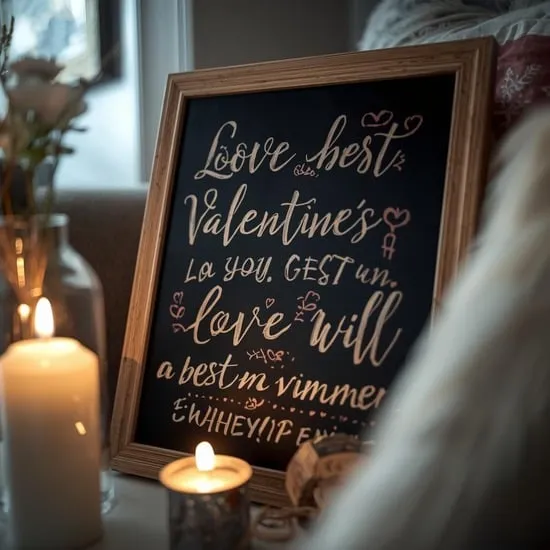 Loove hest
Valentine's
La you. GEST un.
love will
a best m vimmer